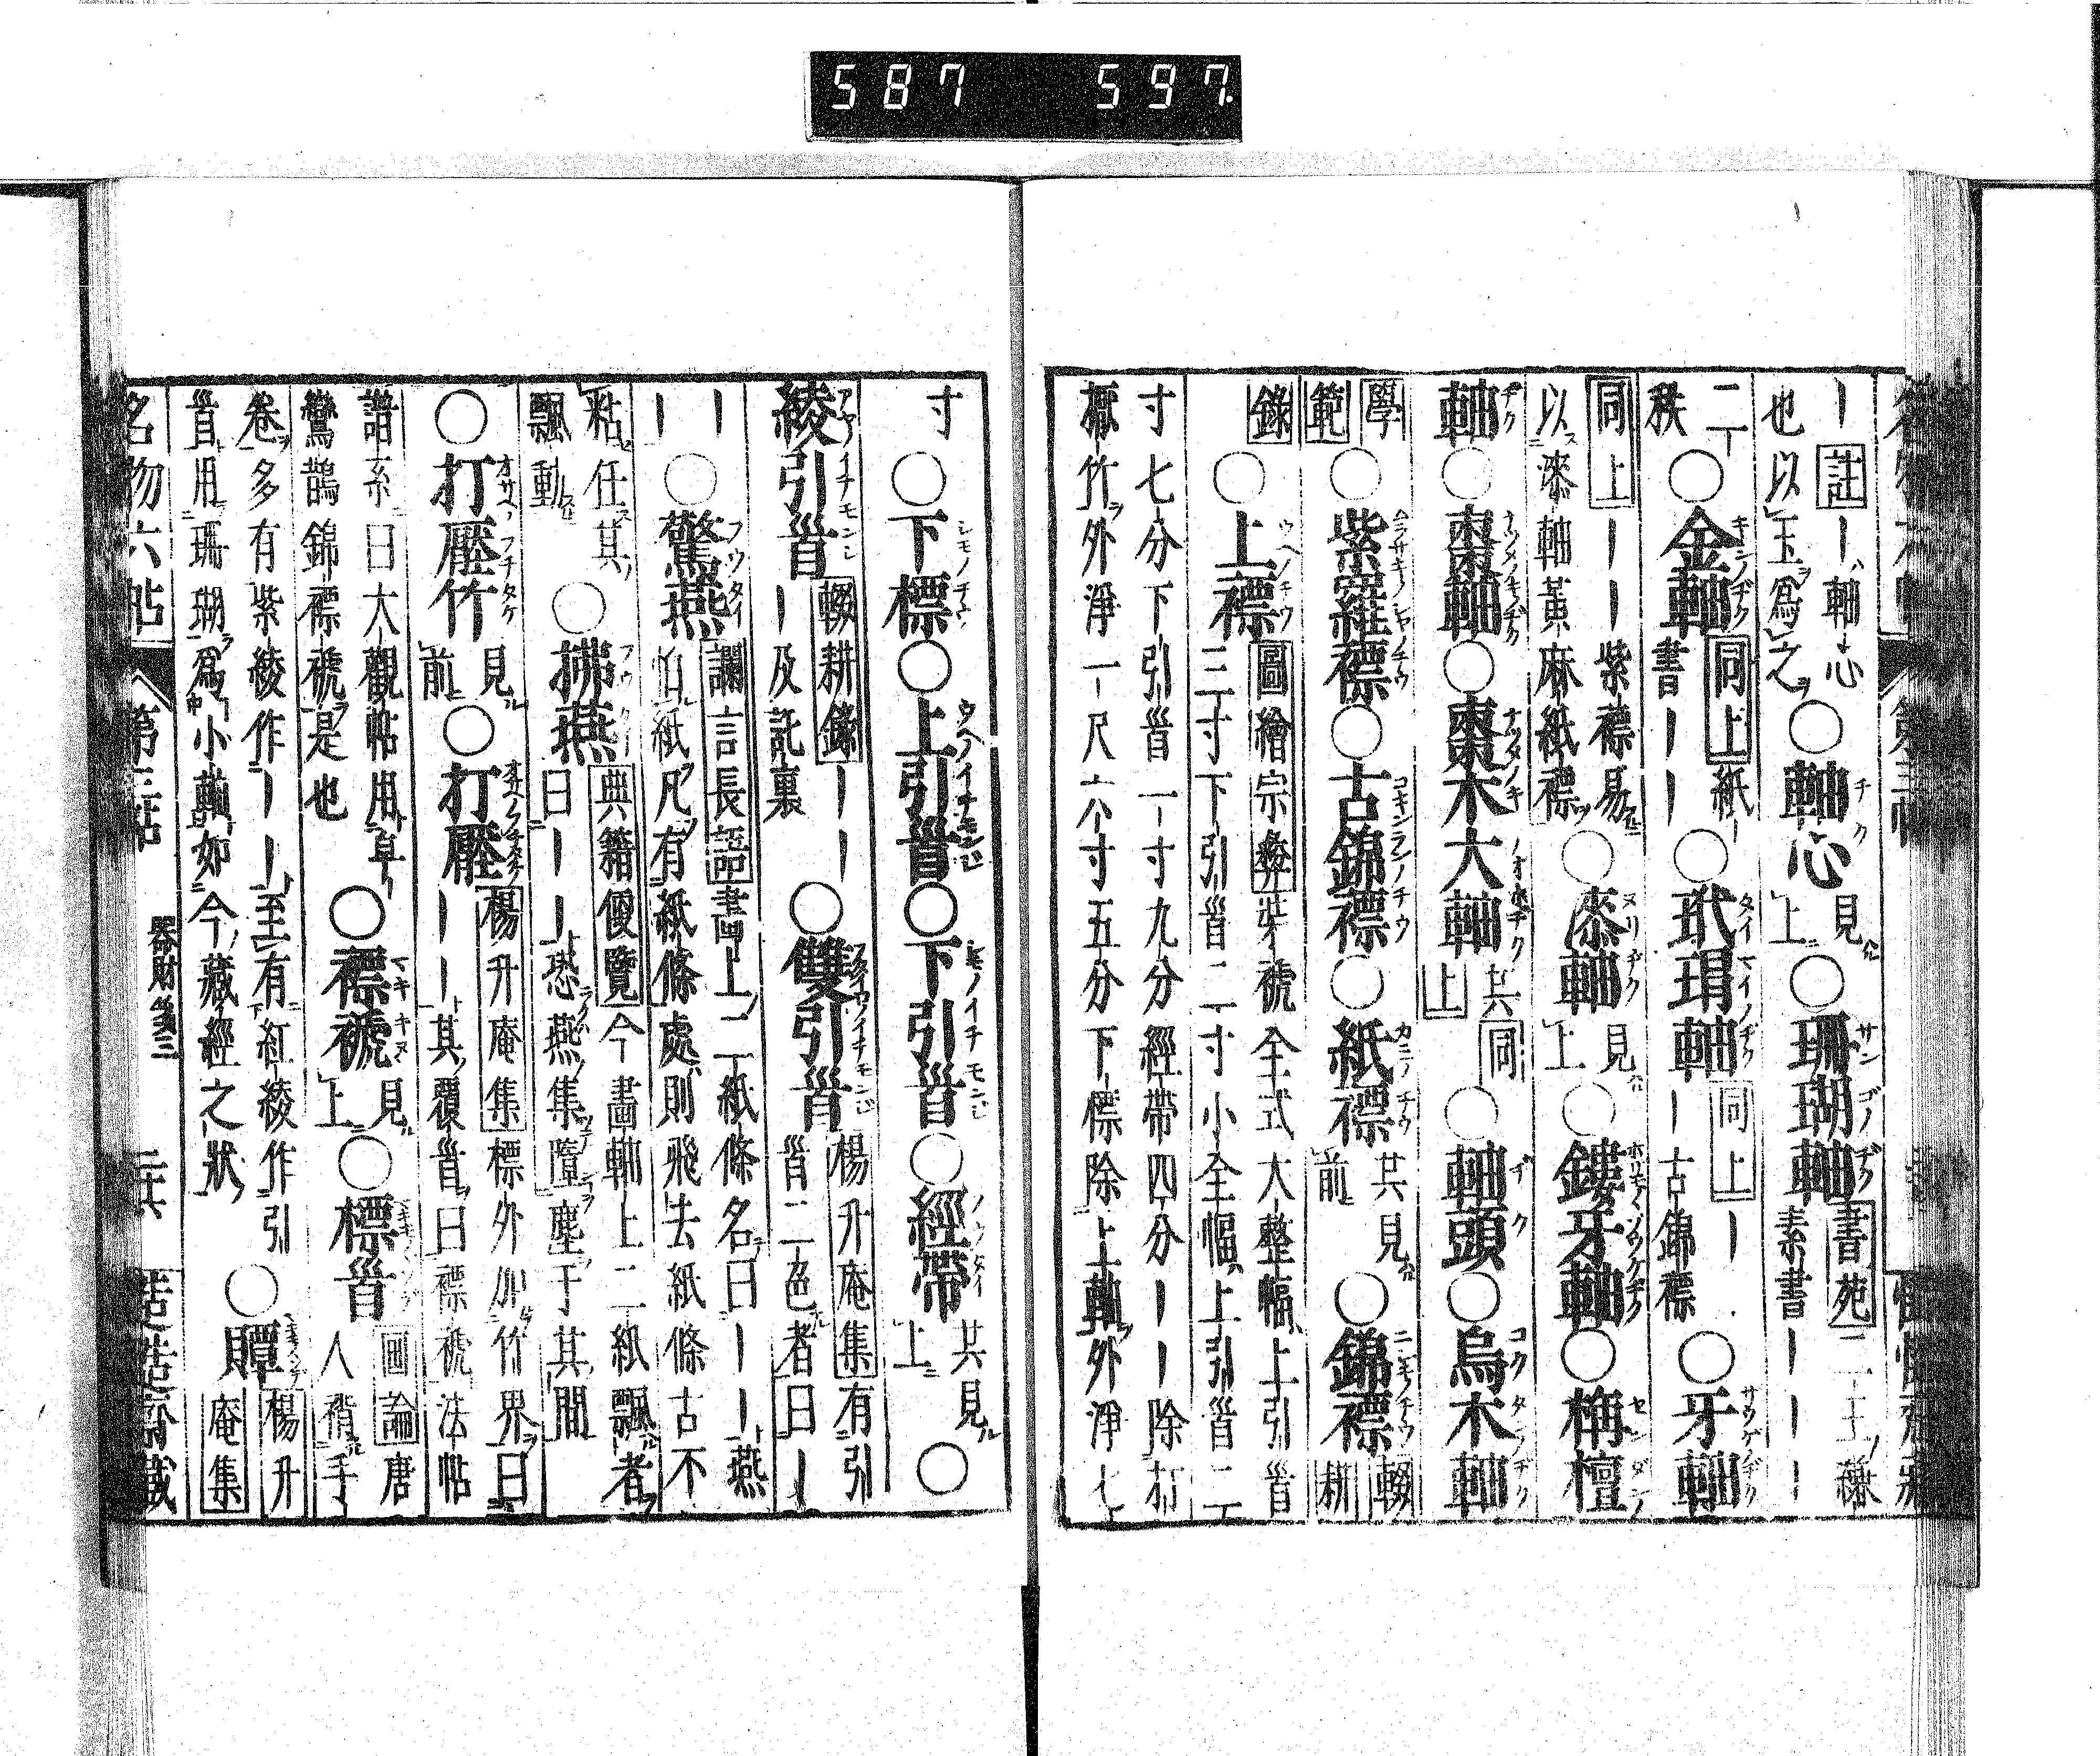 587 597
｜註｜軸心
也以玉爲之○軸心見上○珊瑚軸書苑二王
素書｜｜｜
二｜○金軸同上紙｜○玳瑁軸同上｜
秩 書｜｜ ｜古錦褾○牙軸
同上｜｜紫褾易
以漆軸黃麻紙褾○漆軸見上○鏤牙軸○栴檀
軸○棗軸○棗木大軸共同上○軸頭○烏木軸
學範○紫羅褾○古錦褾○紙褾共見前○錦褾輟耕
錄○上褾圖繪宗彜裝褫全式大整幅上引首
三寸下引首二寸小全幅上引首二
寸七分下引首一寸九分經帶四分｜｜除打
擫竹外淨一尺六寸五分下褾除上軸外淨七
寸○下標○上引首○下引首○經帶共見上○
綾引首輟耕錄｜｜
｜及託裏○雙引首楊升庵集有引
首二色者曰｜
｜｜○驚燕讕言長語畫上二紙條名曰｜｜燕
怕紙凡有紙條處則飛去紙條古不
粘任其
飄動○拂燕典籍便覽今畫軸上二紙飄者
曰｜｜恐燕集墮塵于其間
○打壓竹見前○打壓楊升庵集標外加竹界曰
｜｜其覆首曰褾褫法帖
譜系曰大觀帖用皁
鸞鵲錦褾褫是也○褾褫見上○標首畫論唐
人背手
卷多有紫綾作｜｜至有紅綾作引
首用珊瑚爲小軸如今藏經之狀○贉楊升
庵集
名物六帖 第三帖 器財箋三